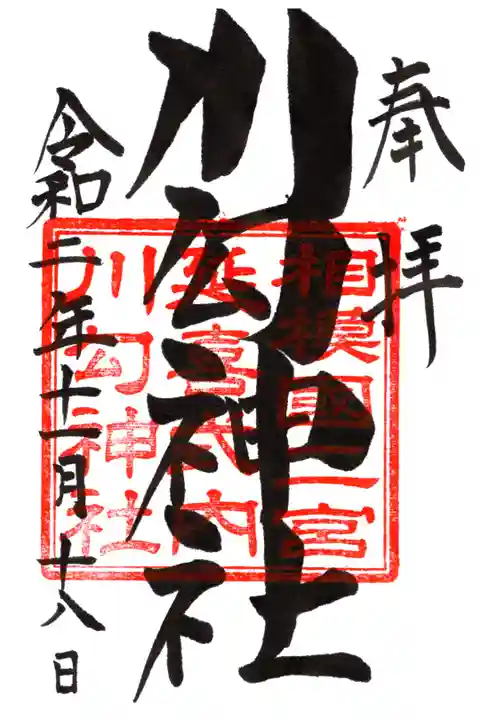 奉拝
川勾神社
令和二年十二月十八日
相模國二宮
延喜式内
川勾神社